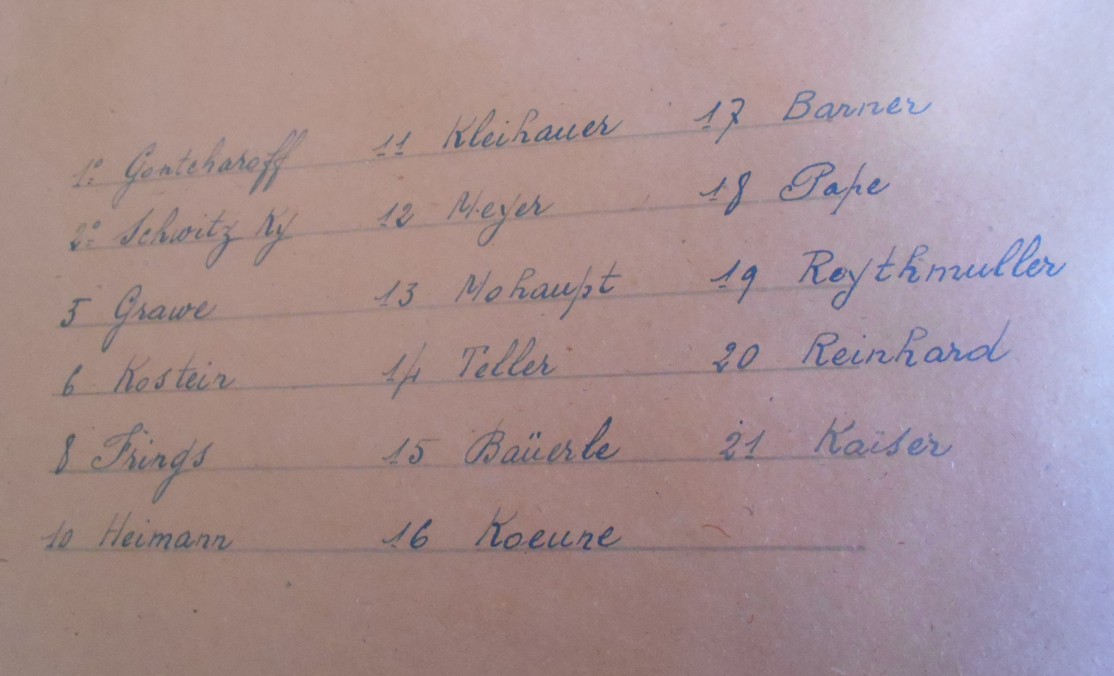 1º Gontcharoff 11 Kleihauer 17 Barner
2º Schwitz Ky 12 Meyer 18 Pape
5 Grawe 13 Mohaupt 19 Roythmuller
6 Kostein 14 Teller 20 Reinhard
8 Frings 15 Baüerle 21 Kaiser
10 Heimann 16 Koeune